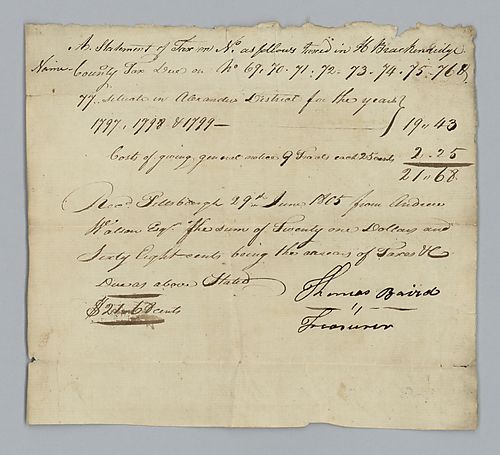 A Statement of Tax on No. as follows Owned in H Brackenridge
Name County Tax Due on No 69, 70. 71. 72. 73. 74. 75. 76 &
77. situate in Alexander's District for the years
1797, 1798 & 1799 — 19,, 43
Costs of giving general notice 9 Tracts each 25 cents 2.25
21,, 68
Recd. Pittsburgh 29th June 1805 from Andrew
Watson Esqr. the sum of Twenty one Dollars and
Sixty Eight cents being the arrears of Taxes &c
Due as above Stated
$21.68 cents
Thomas Baird
Treasurer